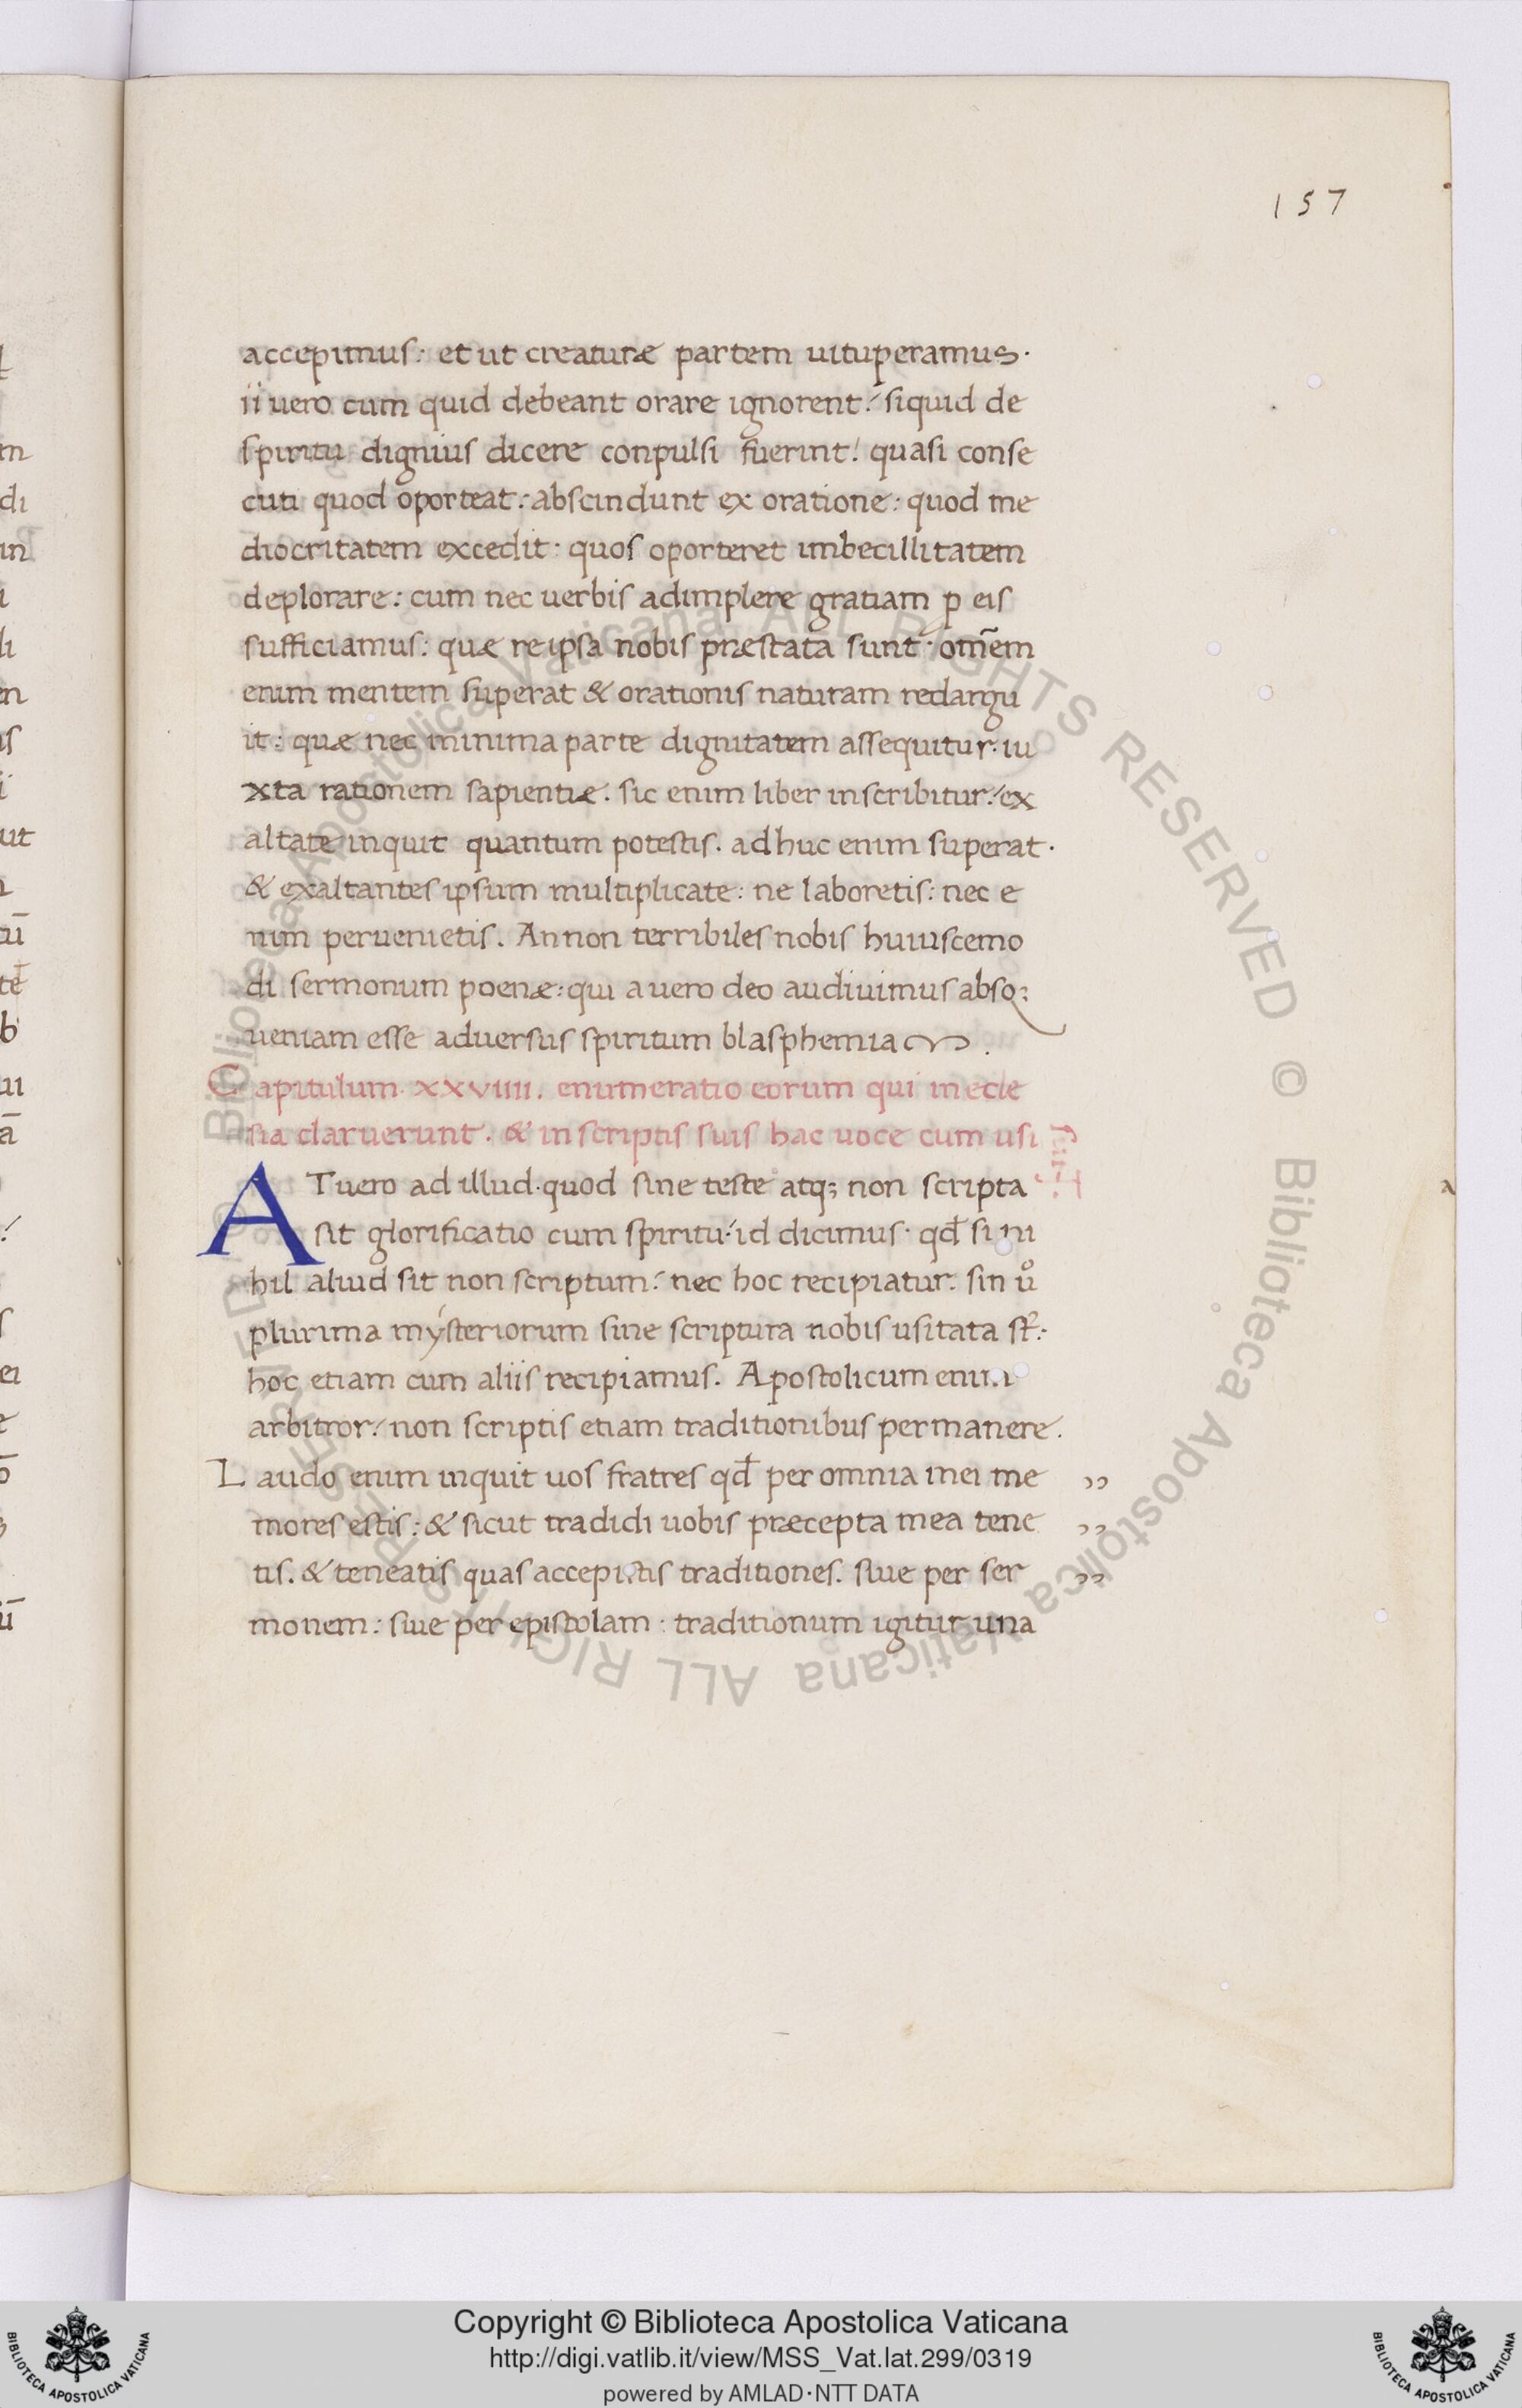 157
accepimus: et ut creaturæ partem uituperamus.
ii uero cum quid debeant orare ignorent: siquid de
spiritu dignius dicere conpulsi fuerint: quasi conse
cuti quod oporteat: abscindunt ex oratione: quod me
diocritatem excedit· quos oporteret imbecillitatem
deplorare: cum nec uerbis adimplere gratiam p eis
sufficiamus: quæ re ipsa nobis præstata sunt· om̄em
enim mentem superat & orationis naturam redargu
it: quæ nec minima parte dignitatem assequitur: iu
xta rationem sapientiæ. sic enim liber inscribitur: ex
altate inquit quantum potestis. adhuc enim superat·
& exaltantes ipsum multiplicate: ne laboretis: nec e
nim peruenietis. An non terribiles nobis huiuscemo
di sermonum poenæ: qui a uero deo audiuimus absq;
ueniam esse aduersus spiritum blasphemia.
Capitulum· xxviiii. enumeratio eorum qui in ecle
sia claruerunt. & in scriptis suis hac uoce cum usi
AT uero ad illud·quod sine teste atq; non scripta
sit glorificatio cum spiritu: id dicimus· qd̄ si ni
hil aliud sit non scriptum: nec hoc recipiatur. sin uo
plurima mýsteriorum sine scriptura nobis usitata st̄:
hoc etiam cum aliis recipiamus. Apostolicum enim
arbitror: non scriptis etiam traditionibus permanere.
Laudo enim inquit uos fratres qd̄ per omnia mei me ,,
mores estis: & sicut tradidi uobis præcepta mea tene ,,
tis. & teneatis quas accepistis traditiones. siue per ser ,,
monem: siue per epistolam: traditionum igitur una
Biblioteca Apostolica Vaticana ALL RIGHTS RESERVED © Biblioteca Apostolica Vaticana ALL RIGHTS RESERVED ©
Copyright © Biblioteca Apostolica Vaticana
http://digi.vatlib.it/view/MSS_Vat.lat.299/0319
powered by AMLAD·NTT DATA
BIBLIOTECA APOSTOLICA VATICANA
BIBLIOTECA APOSTOLICA VATICANA